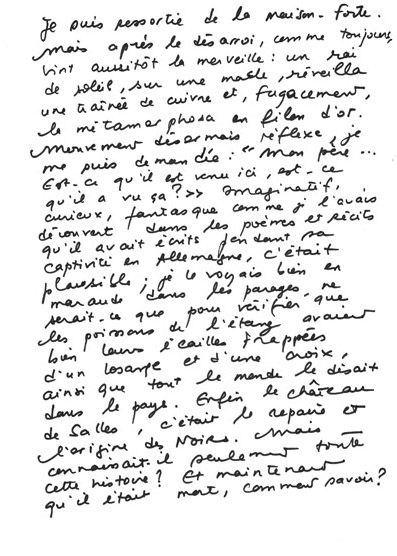 Je suis ressortie de la maison-forte.
Mais après le désarroi, comme toujours,
vint aussitôt la merveille : un rai
de soleil, sur une macle, réveilla
une traînée de cuivre et, fugacement,
la métamorphosa en filon d'or.
Mouvement désormais réflexe, je
me suis demandée : " Mon père ...
Est-ce qu'il est venu ici, est-ce
qu'il a vu ça ? >> Imaginatif,
curieux, fantasque comme je l'avais
découvert dans les poèmes et récits
qu'il avait écrits pendant sa
captivité en Allemagne, c'était
plausible ; je le voyais bien en
maraude dans les parages, ne
serait-ce que pour vérifier que
les poissons de l'étang avaient
bien leurs écailles frappées
d'un losange et d'une croix,
ainsi que tout le monde le disait
dans le pays. Enfin le château
de Salles, c'était le repaire et
l'origine des Noirs. Mais
connaissait-il seulement toute
cette histoire ? Et maintenant
qu'il était mort, comment savoir ?